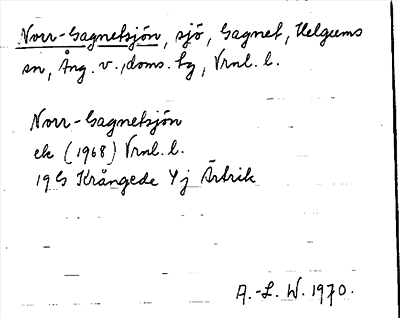 Norr-Gagnetsjön, sjö, Gagnet, Helgums
sn, Ång. v., doms. tg, Vrnl. l.
Norr-Gagnetsjön
ek (1968) Vrnl. l.
19G Krångede Yj Ärtrik
A.-L. W. 1970.